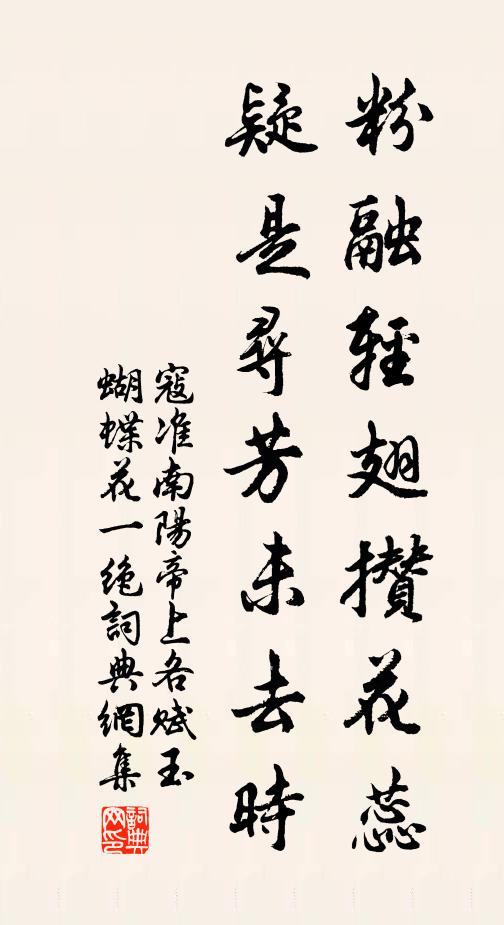 粉融輕翅攢花蕊
疑是尋芳未去時
寇准南陽帝上各賦玉
蝴蝶花一絶詞典網集
詞典网印